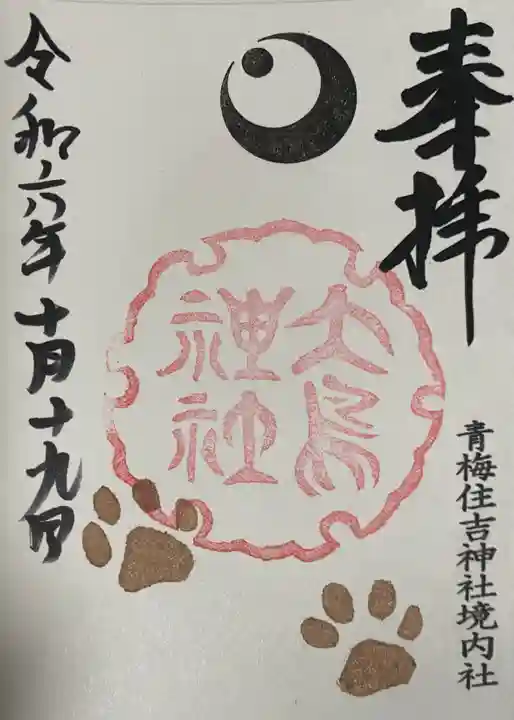 奉拝
青梅住吉神社境内社
大鳥
神社
令和六年十月十九日